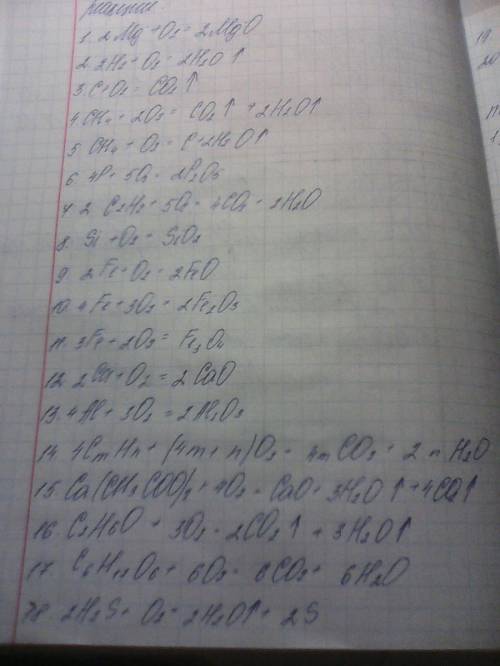 реакции.
1. 2Mg + O₂ = 2MgO
2. 2H₂ + O₂ = 2H₂O↑
3. C + O₂ = CO₂↑
4. CH₄ + 2O₂ = CO₂↑ + 2H₂O↑
5. CH₄ + O₂ = C + 2H₂O↑
6. 4P + 5O₂ = 2P₂O₅
7. 2C₂H₂ + 5O₂ = 4CO₂ + 2H₂O
8. Si + O₂ = SiO₂
9. 2Fe + O₂ = 2FeO
10. 4Fe + 3O₂ = 2Fe₂O₃
11. 3Fe + 2O₂ = Fe₃O₄
12. 2Ca + O₂ = 2CaO
13. 4Al + 3O₂ = 2Al₂O₃
14. 4CmHn + (4m + n)O₂ = 4mCO₂ + 2nH₂O
15. Ca(CH₃COO)₂ + 4O₂ = CaO + 3H₂O↑ + 4CO₂↑
16. C₂H₆O + 3O₂ = 2CO₂↑ + 3H₂O↑
17. C₆H₁₂O₆ + 6O₂ = 6CO₂ + 6H₂O
18. 2H₂S + O₂ = 2H₂O↑ + 2S
19.
20